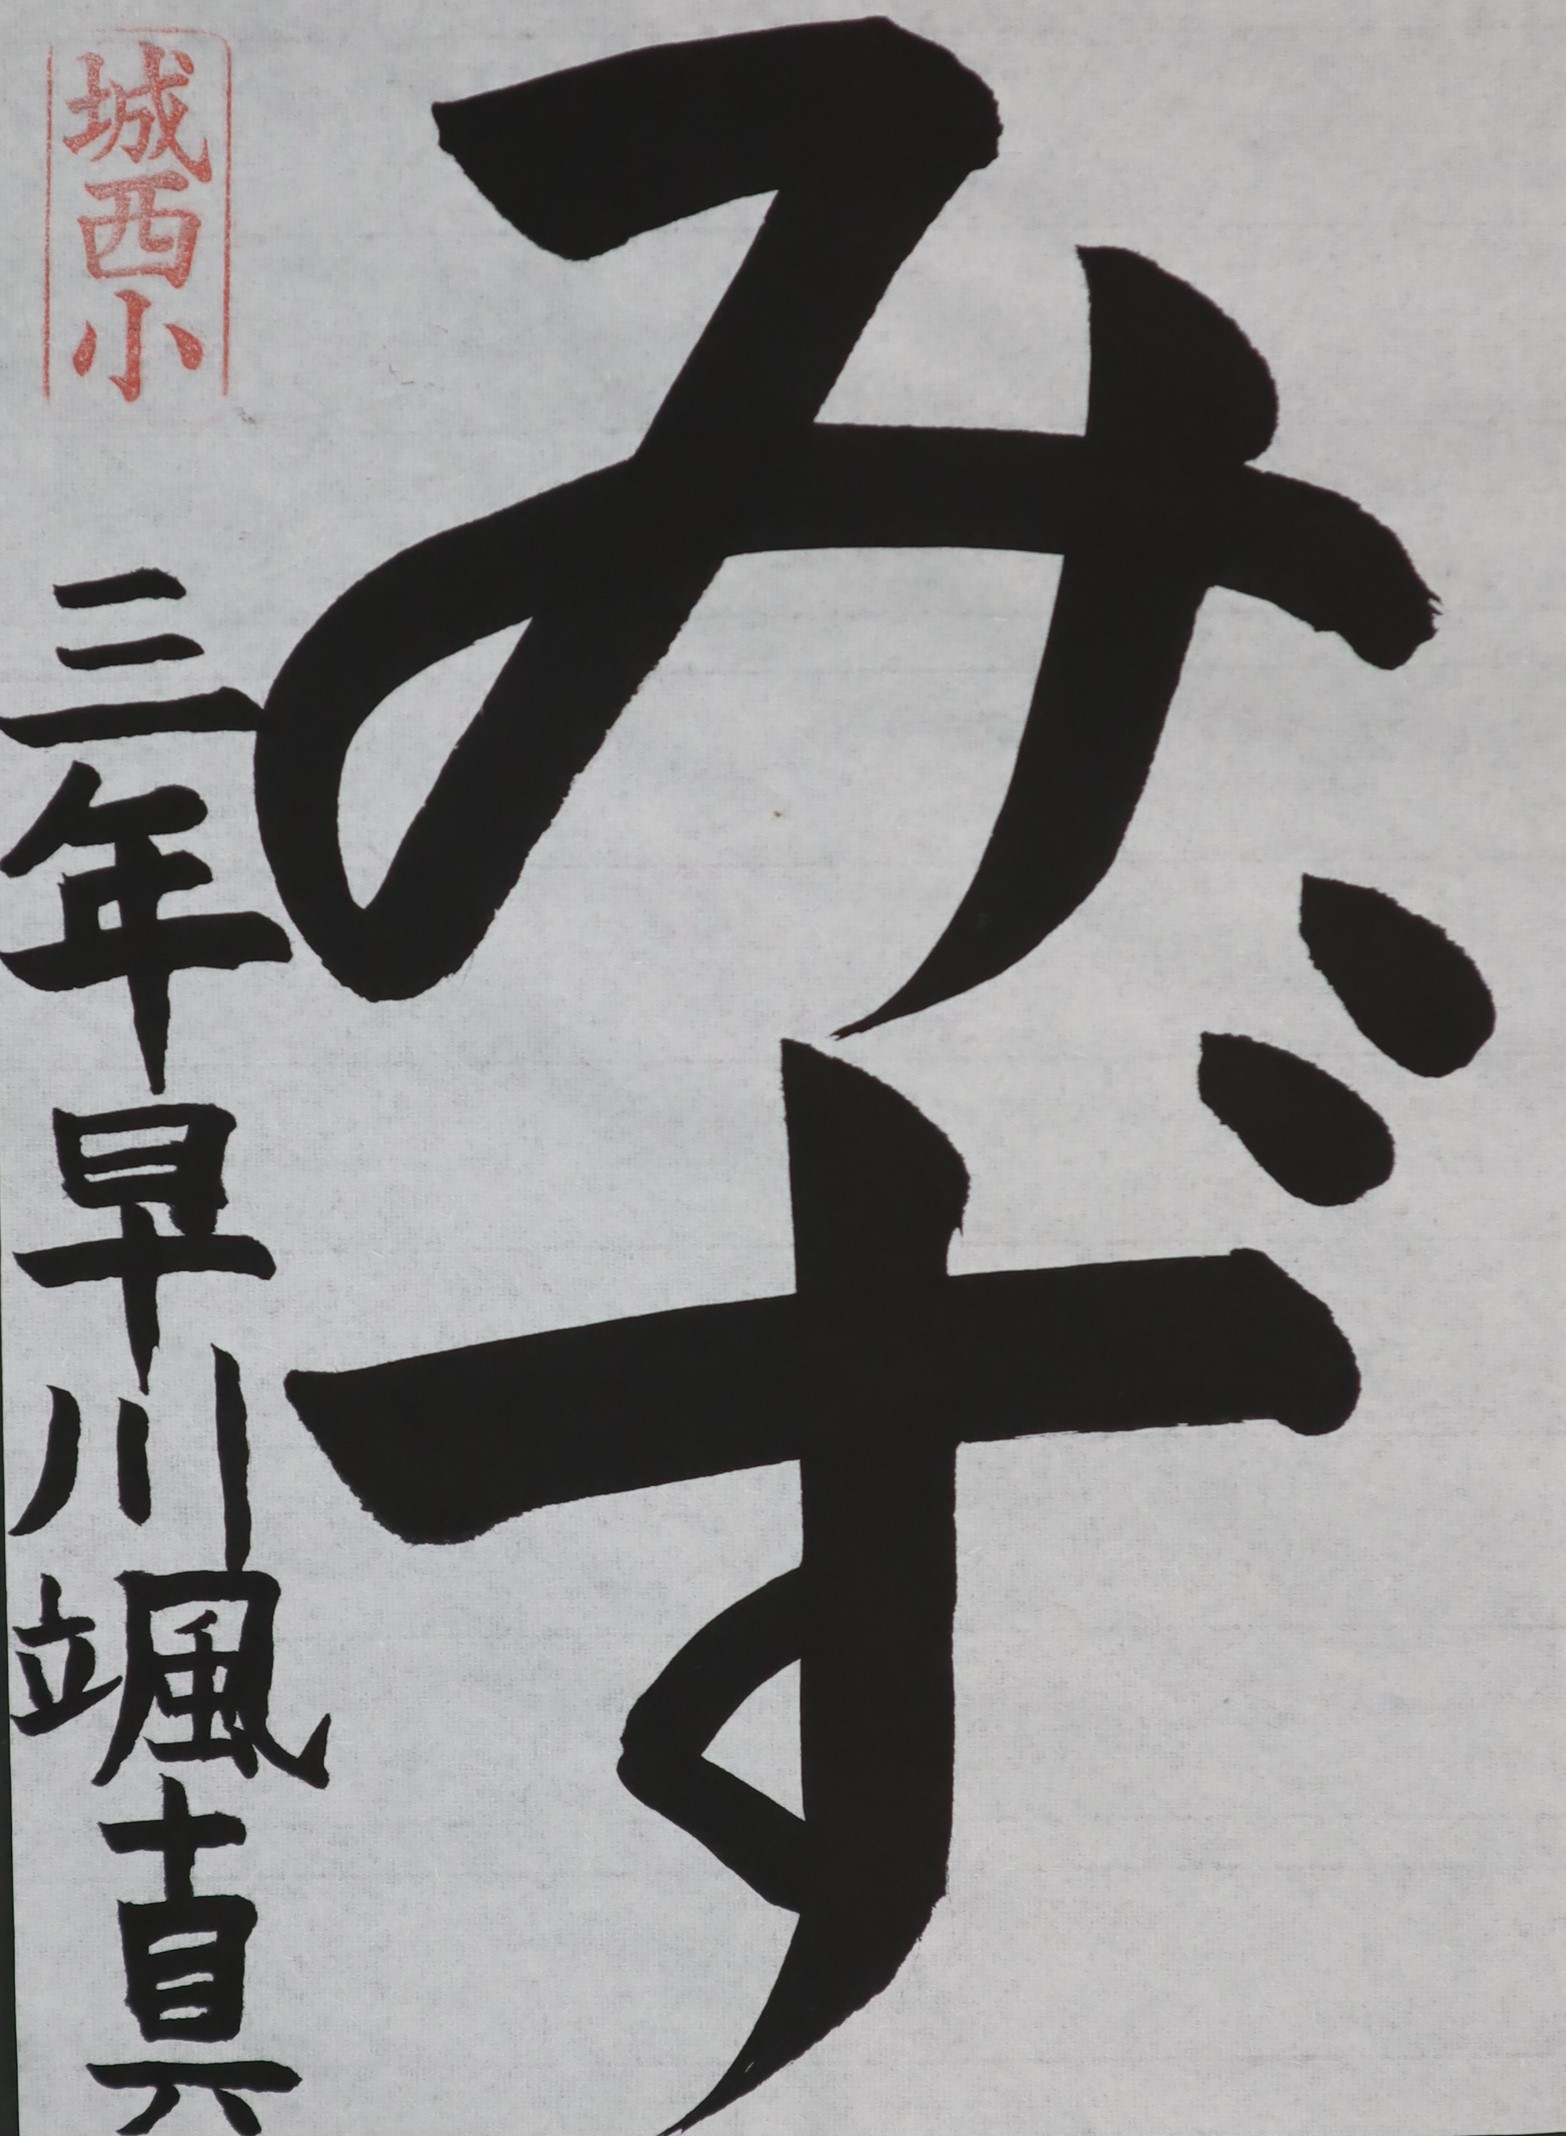 みず
城西小
三年早川颯真